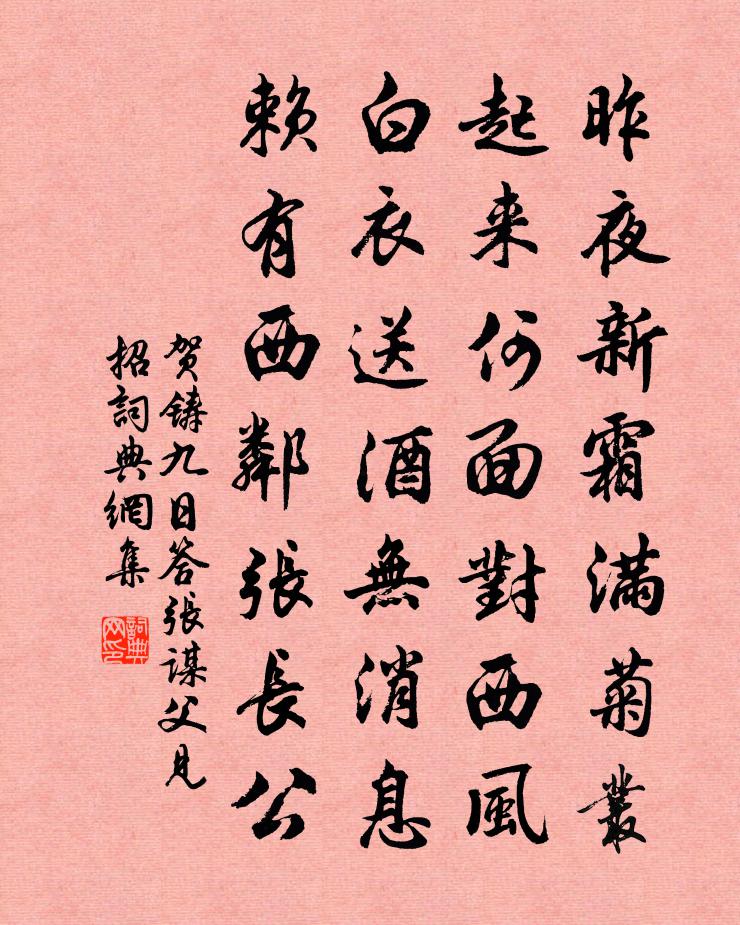 昨夜新霜满菊叢
起来何面對西風
白衣送酒無消息
賴有西鄰張長公
贺鑄九日答張谋父見
招詞典網集
詞典网印